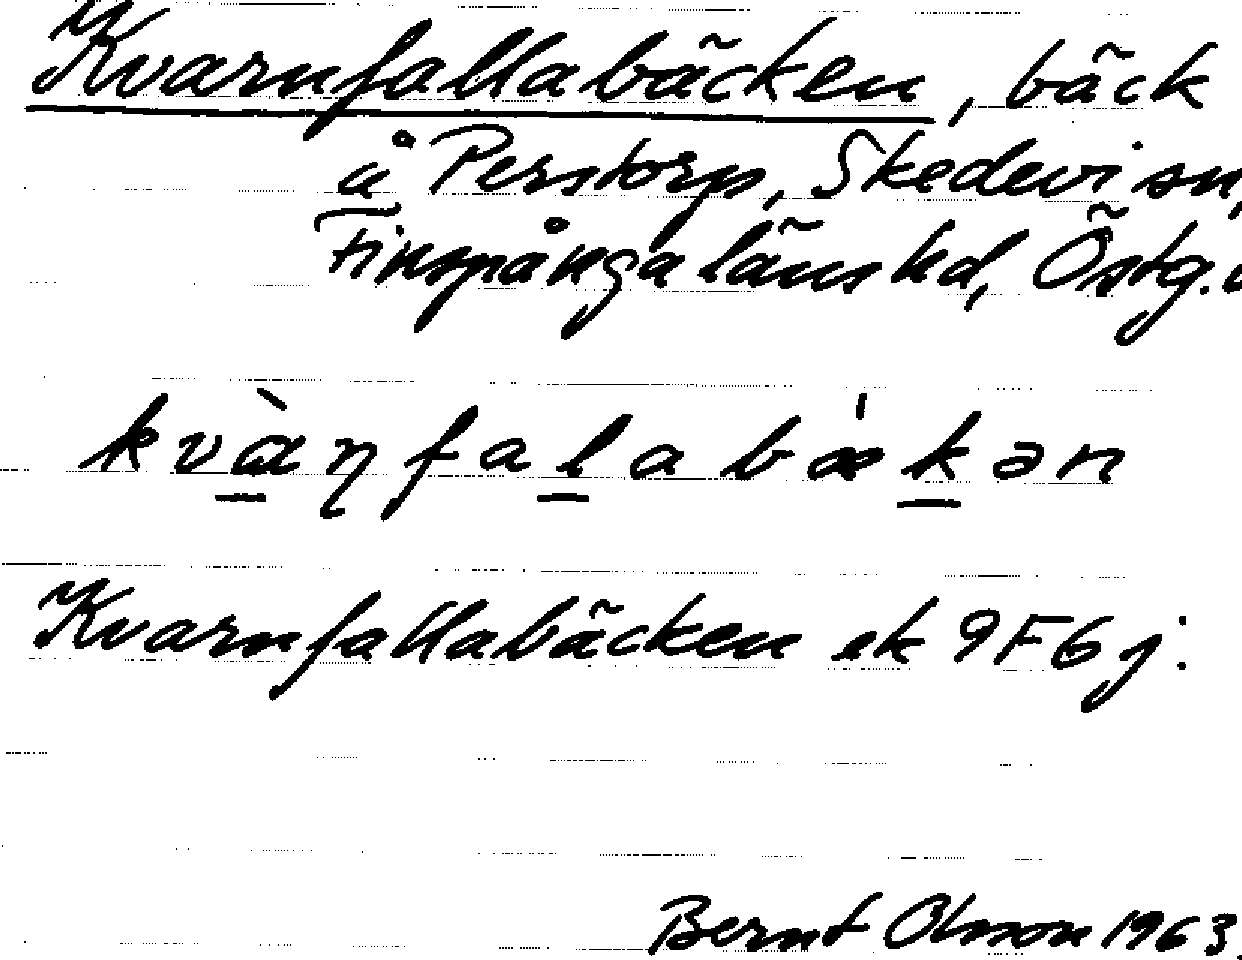 Kvarnfallabäcken, bäck
å Perstorp, Skedevi sn,
Finspånga läns hd, Östg.
kvànfalabækən
Kvarnfallabäcken ek 9F6j.
Bernt Olsson 1963.